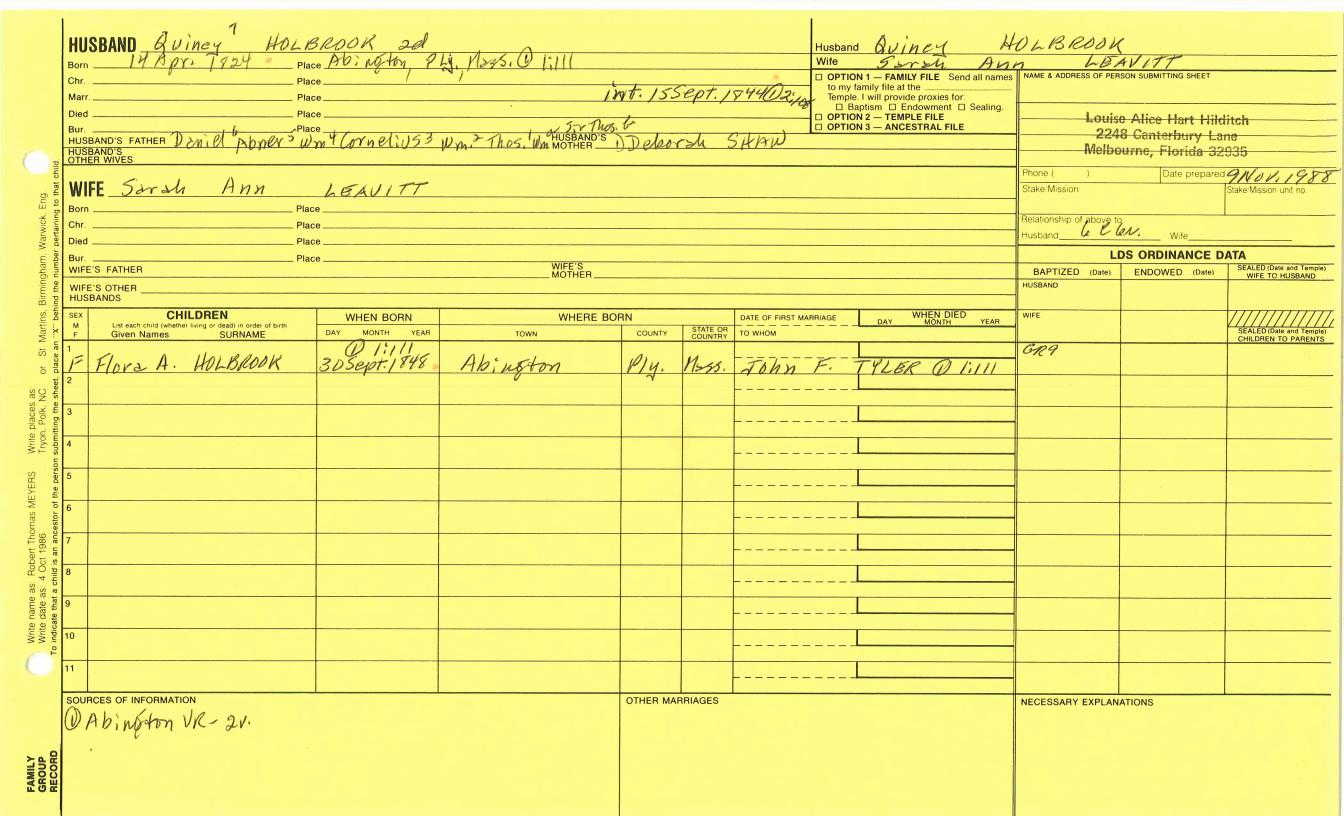 HUSBAND Quincy 7 HOLBROOK 2d
Born 14 Apr. 1824 Place Abington, Ply., Mass. ① 1:111
Chr. Place
Marr. Place int. 15 Sept. 1844 ① 2:108
Died Place
Bur. Place
HUSBAND'S FATHER Daniel 6 Abner 5 Wm 4 Cornelius 3 Wm. 2 Thos. 1 Wm Sir Thos. HUSBAND'S MOTHER ① Deborah SHAW
HUSBAND'S OTHER WIVES
WIFE Sarah Ann LEAVITT
Born Place
Chr. Place
Died Place
Bur. Place
WIFE'S FATHER WIFE'S MOTHER
WIFE'S OTHER HUSBANDS
Husband Quincy HOLBROOK
Wife Sarah Ann LEAVITT
☐ OPTION 1 — FAMILY FILE Send all names
to my family file at the
Temple. I will provide proxies for
☐ Baptism ☐ Endowment ☐ Sealing.
☐ OPTION 2 — TEMPLE FILE
☐ OPTION 3 — ANCESTRAL FILE
NAME & ADDRESS OF PERSON SUBMITTING SHEET
Louise Alice Hart Hilditch
2248 Canterbury Lane
Melbourne, Florida 32935
Phone ( ) Date prepared 9 Nov. 1988
Stake Mission Stake Mission unit no.
Relationship of above to
Husband Wife
LDS ORDINANCE DATA
BAPTIZED (Date) ENDOWED (Date) SEALED (Date and Temple) WIFE TO HUSBAND
HUSBAND
WIFE
SEALED (Date and Temple) CHILDREN TO PARENTS
SEX M F
CHILDREN
List each child (whether living or dead) in order of birth
Given Names SURNAME
WHEN BORN
DAY MONTH YEAR
WHERE BORN
TOWN COUNTY STATE OR COUNTRY
DATE OF FIRST MARRIAGE
TO WHOM
WHEN DIED
DAY MONTH YEAR
1 ① 1:111 GR9
F Flora A. HOLBROOK 30 Sept. 1848 Abington Ply. Mass. John F. TYLER ① 1:111
2
3
4
5
6
7
8
9
10
11
SOURCES OF INFORMATION
① Abington VR - 2v.
OTHER MARRIAGES
NECESSARY EXPLANATIONS
Write name as: Robert Thomas MEYERS Write places as Tryon, Polk, NC or St Martins, Birmingham, Warwick, Eng
Write date as: 4 Oct 1986
To indicate that a child is an ancestor of the person submitting the sheet, place an "X" behind the number pertaining to that child
FAMILY
GROUP
RECORD